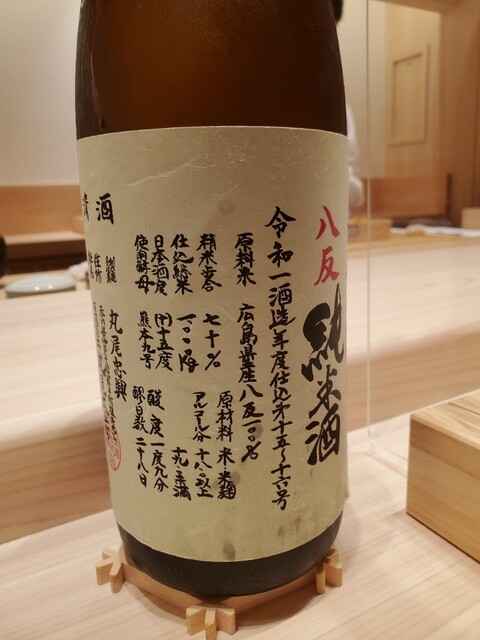 八反 純米酒
令和一酒造年度仕込第十五〜十六号
原料米 広島県産八反一〇〇%
原材料 米・米麹
精米歩合 七十%
アルコール分 十八度以上
仕込総米
十九度未満
日本酒度 (+)十五度
酸度 一度九分
使用酵母 熊本九号
醪日数 二十八日
丸尾忠興
清酒